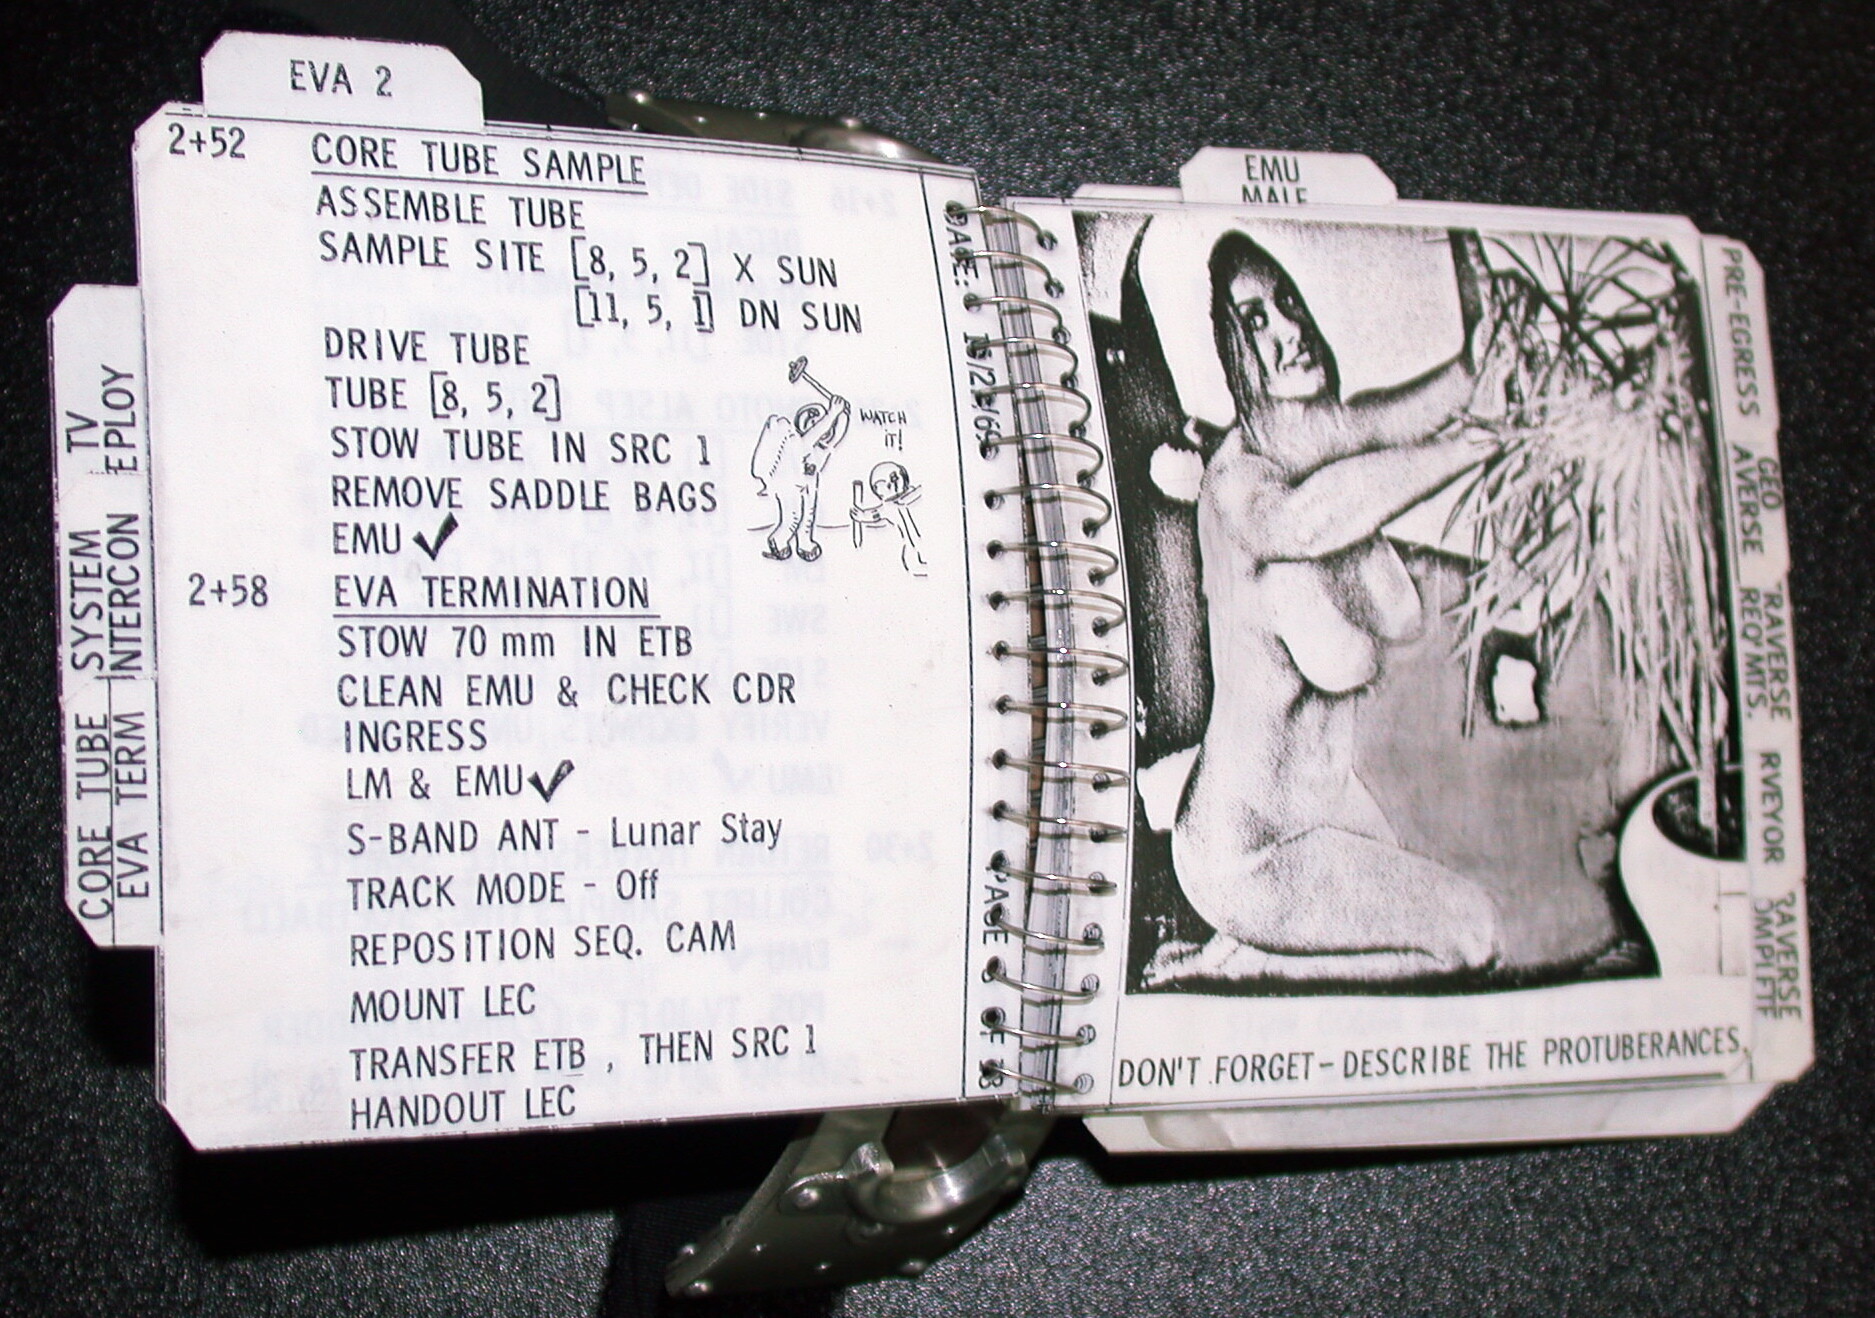 EVA 2
2+52 CORE TUBE SAMPLE
ASSEMBLE TUBE
SAMPLE SITE [8, 5, 2] X SUN
[11, 5, 1] DN SUN
DRIVE TUBE
TUBE [8, 5, 2]
STOW TUBE IN SRC 1
REMOVE SADDLE BAGS
EMU ✓
WATCH
IT!
2+58 EVA TERMINATION
STOW 70 mm IN ETB
CLEAN EMU & CHECK CDR
INGRESS
LM & EMU ✓
S-BAND ANT - Lunar Stay
TRACK MODE - Off
REPOSITION SEQ. CAM
MOUNT LEC
TRANSFER ETB, THEN SRC 1
HANDOUT LEC
TV
SYSTEM
INTERCON EPLOY
CORE TUBE
EVA TERM
DATE:
PAGE OF
EMU
MALF
DON'T FORGET - DESCRIBE THE PROTUBERANCES.
PRE-EGRESS
GEO
AVERSE
TRAVERSE
REQ'MTS.
RVEYOR
RAVERSE
OMPLETE